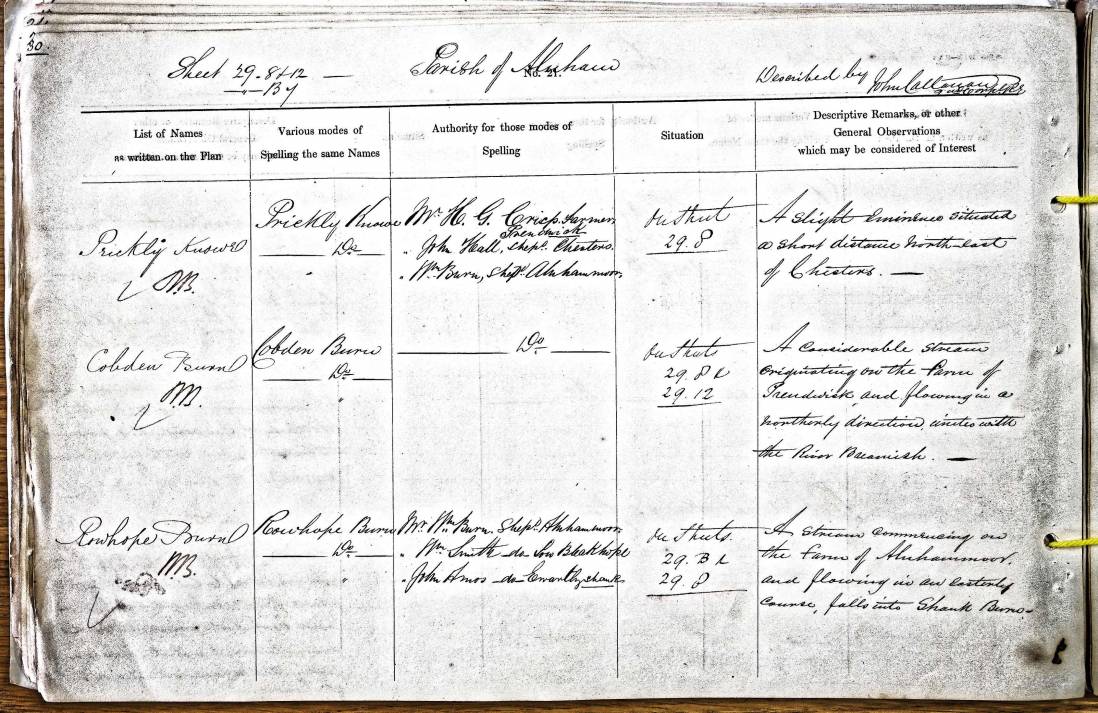 30.
Sheet 29.8&12 — Parish of Alnham Described by
By No. 21. John Cal
List of Names Various modes of Authority for those modes of Situation Descriptive Remarks, or other
as written on the Plan Spelling the same Names Spelling General Observations
which may be considered of Interest
Prickly Knowe Prickly Knowe Mr. H. G. Crisp. farmer On Shut A slight Eminence situated
Do Prendwick 29.8 a short distance North-east
" " John Hall, Shept. Chesters. of Chesters. —
" Wm. Burn, Shept. Alnhammoor.
Cobden Burn Cobden Burn Do On Shuts A Considerable Stream
Do 29.8 & Originating on the Farm of
" 29.12 Prendwick, and flowing in a
Northerly direction, unites with
the River Breamish. —
Rowhope Burn Rowhope Burn Mr. Wm. Burn. Shept. Alnhammoor. On Shuts. A Stream Commencing on
Do " Wm. Smith do Low Bleakhope 29.3 & the Farm of Alnhammoor,
" " John Amos do 29.8 and flowing in an Easterly
Course, falls into Shank Burn.